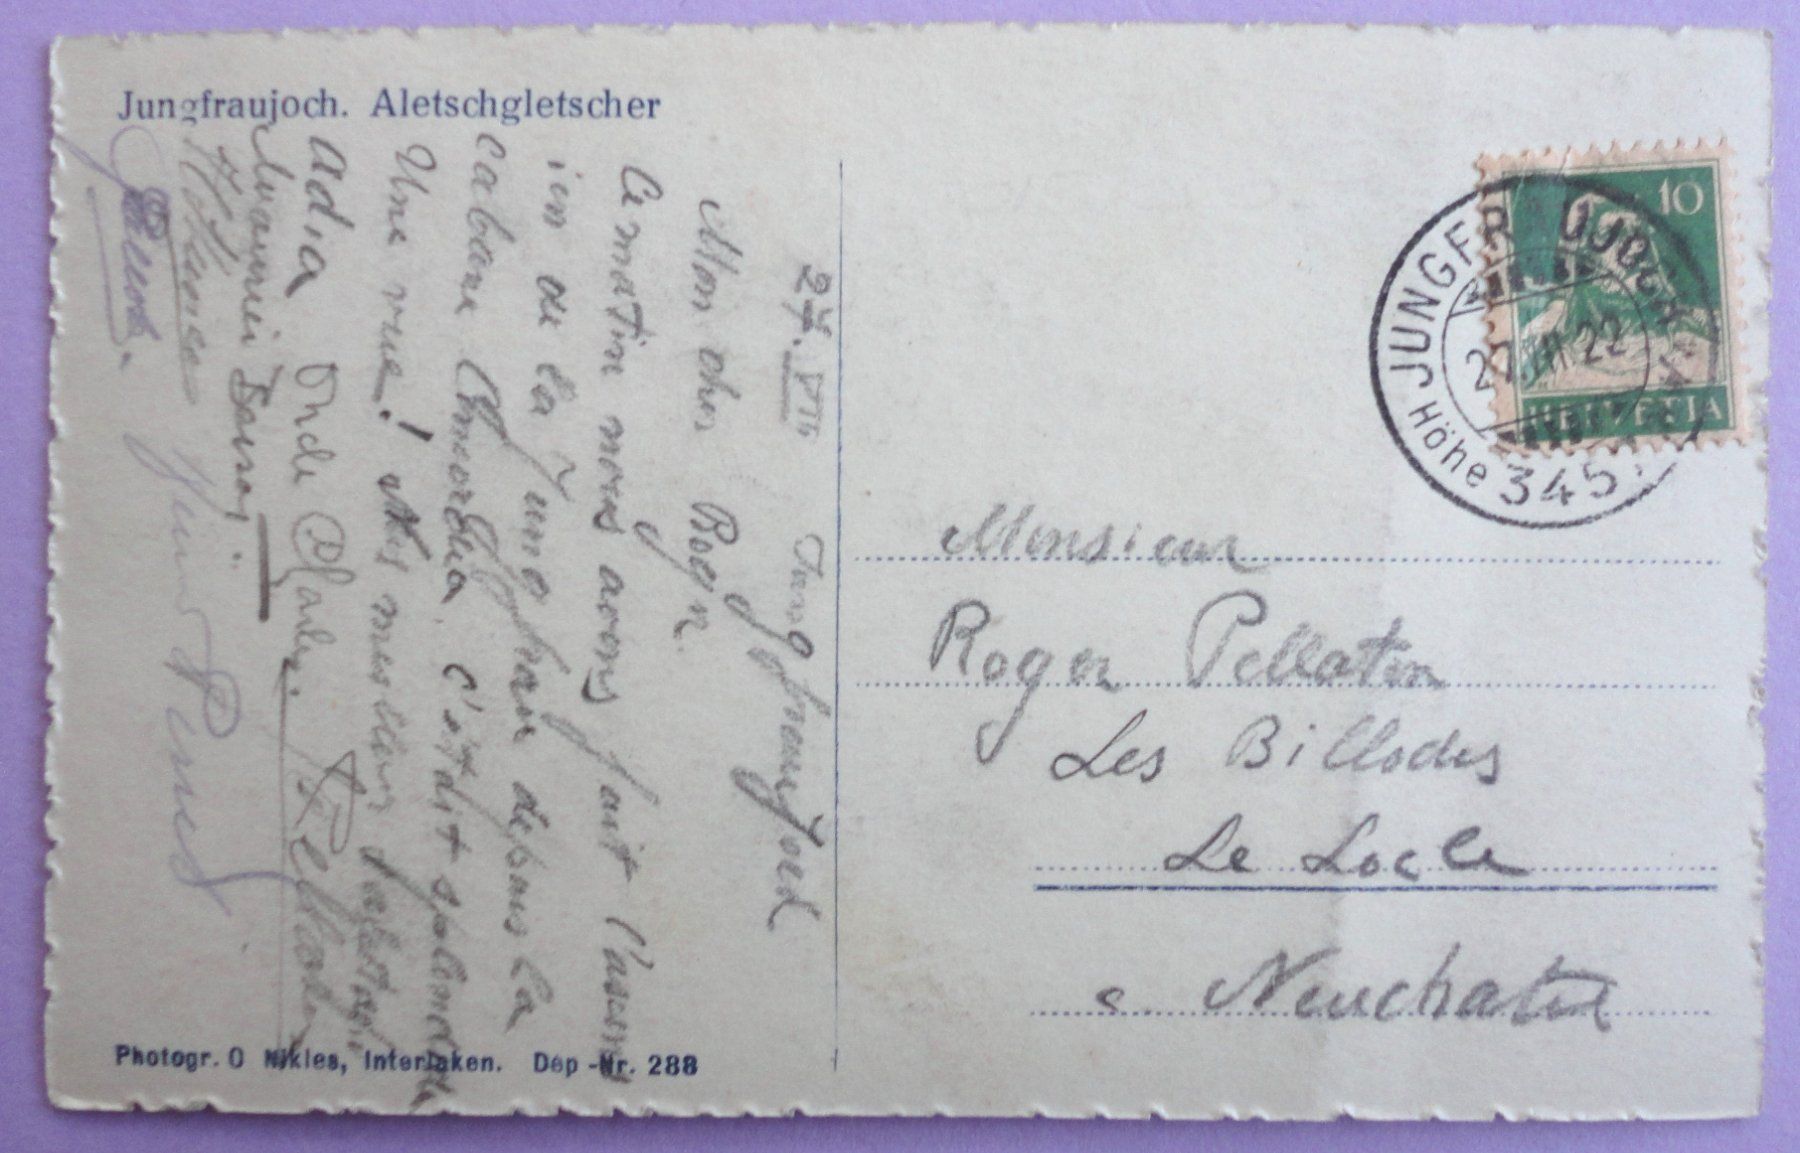 Jungfraujoch. Aletschgletscher
27. VII
Jungfraujoch
Mon cher Roger.
Ce matin nous avons fait l'ascen
sion de la Jungfrau depuis la
cabane Concordia. C'était splendide
Une vue! Mes meilleurs
adia Oncle Charly. Pellaton
Photogr. O Nikles, Interlaken. Dep-Nr. 288
JUNGFRAUJOCH
27.VII.22
Höhe 3457
10
HELVETIA
Monsieur
Roger Pellaton
Les Billodes
Le Locle
c. Neuchatel